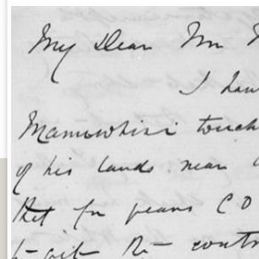 My Dear Mr M
I have
Manuwhiri touch
of his lands near
that for years C O